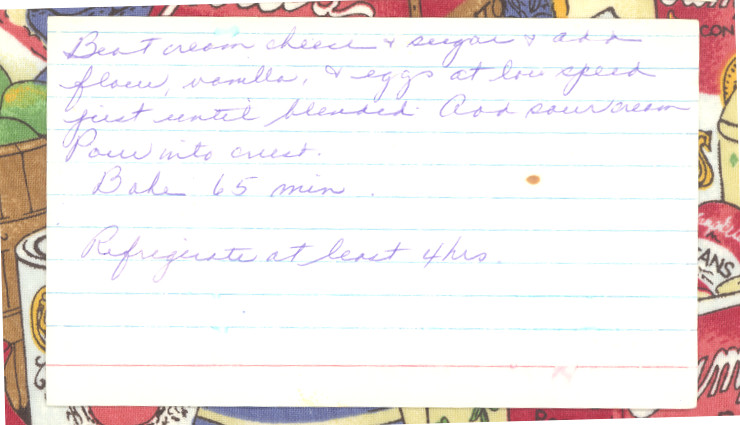 Beat cream cheese & sugar & add
flour, vanilla, & eggs at low speed
just until blended. Add sour cream
Pour into crust.
Bake 65 min.
Refrigerate at least 4 hrs.
CON
ANS